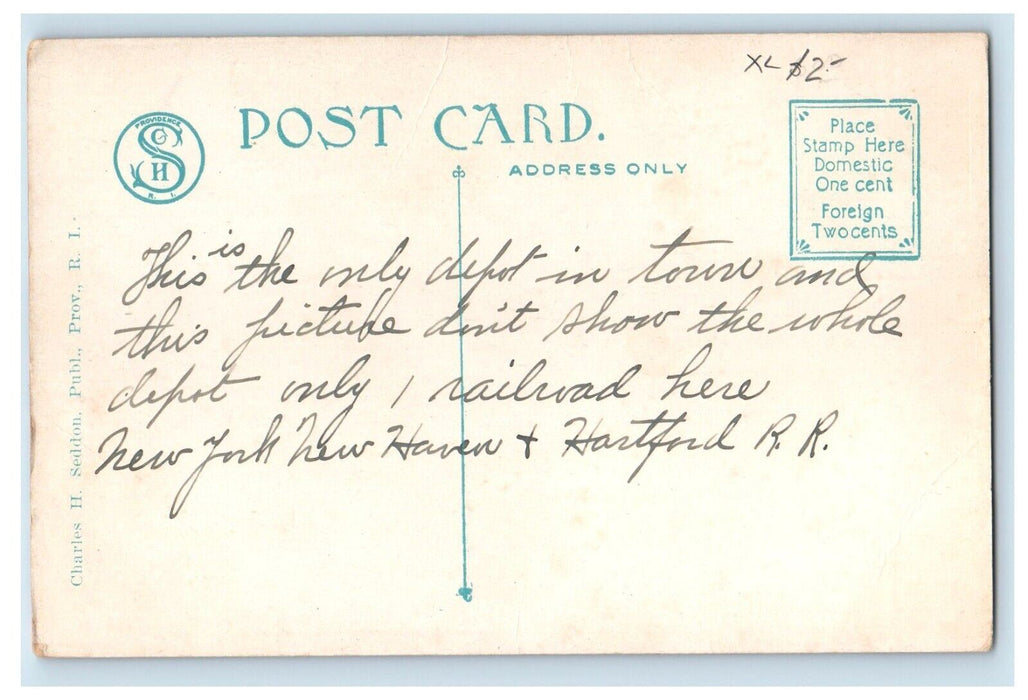 XL $2-
PROVIDENCE
C
S
H
R. I.
POST CARD.
ADDRESS ONLY
Place
Stamp Here
Domestic
One cent
Foreign
Two cents
Charles H. Seddon, Publ., Prov., R. I.
This is the only depot in town and
this picture don't show the whole
depot only 1 railroad here
New York New Haven + Hartford R. R.